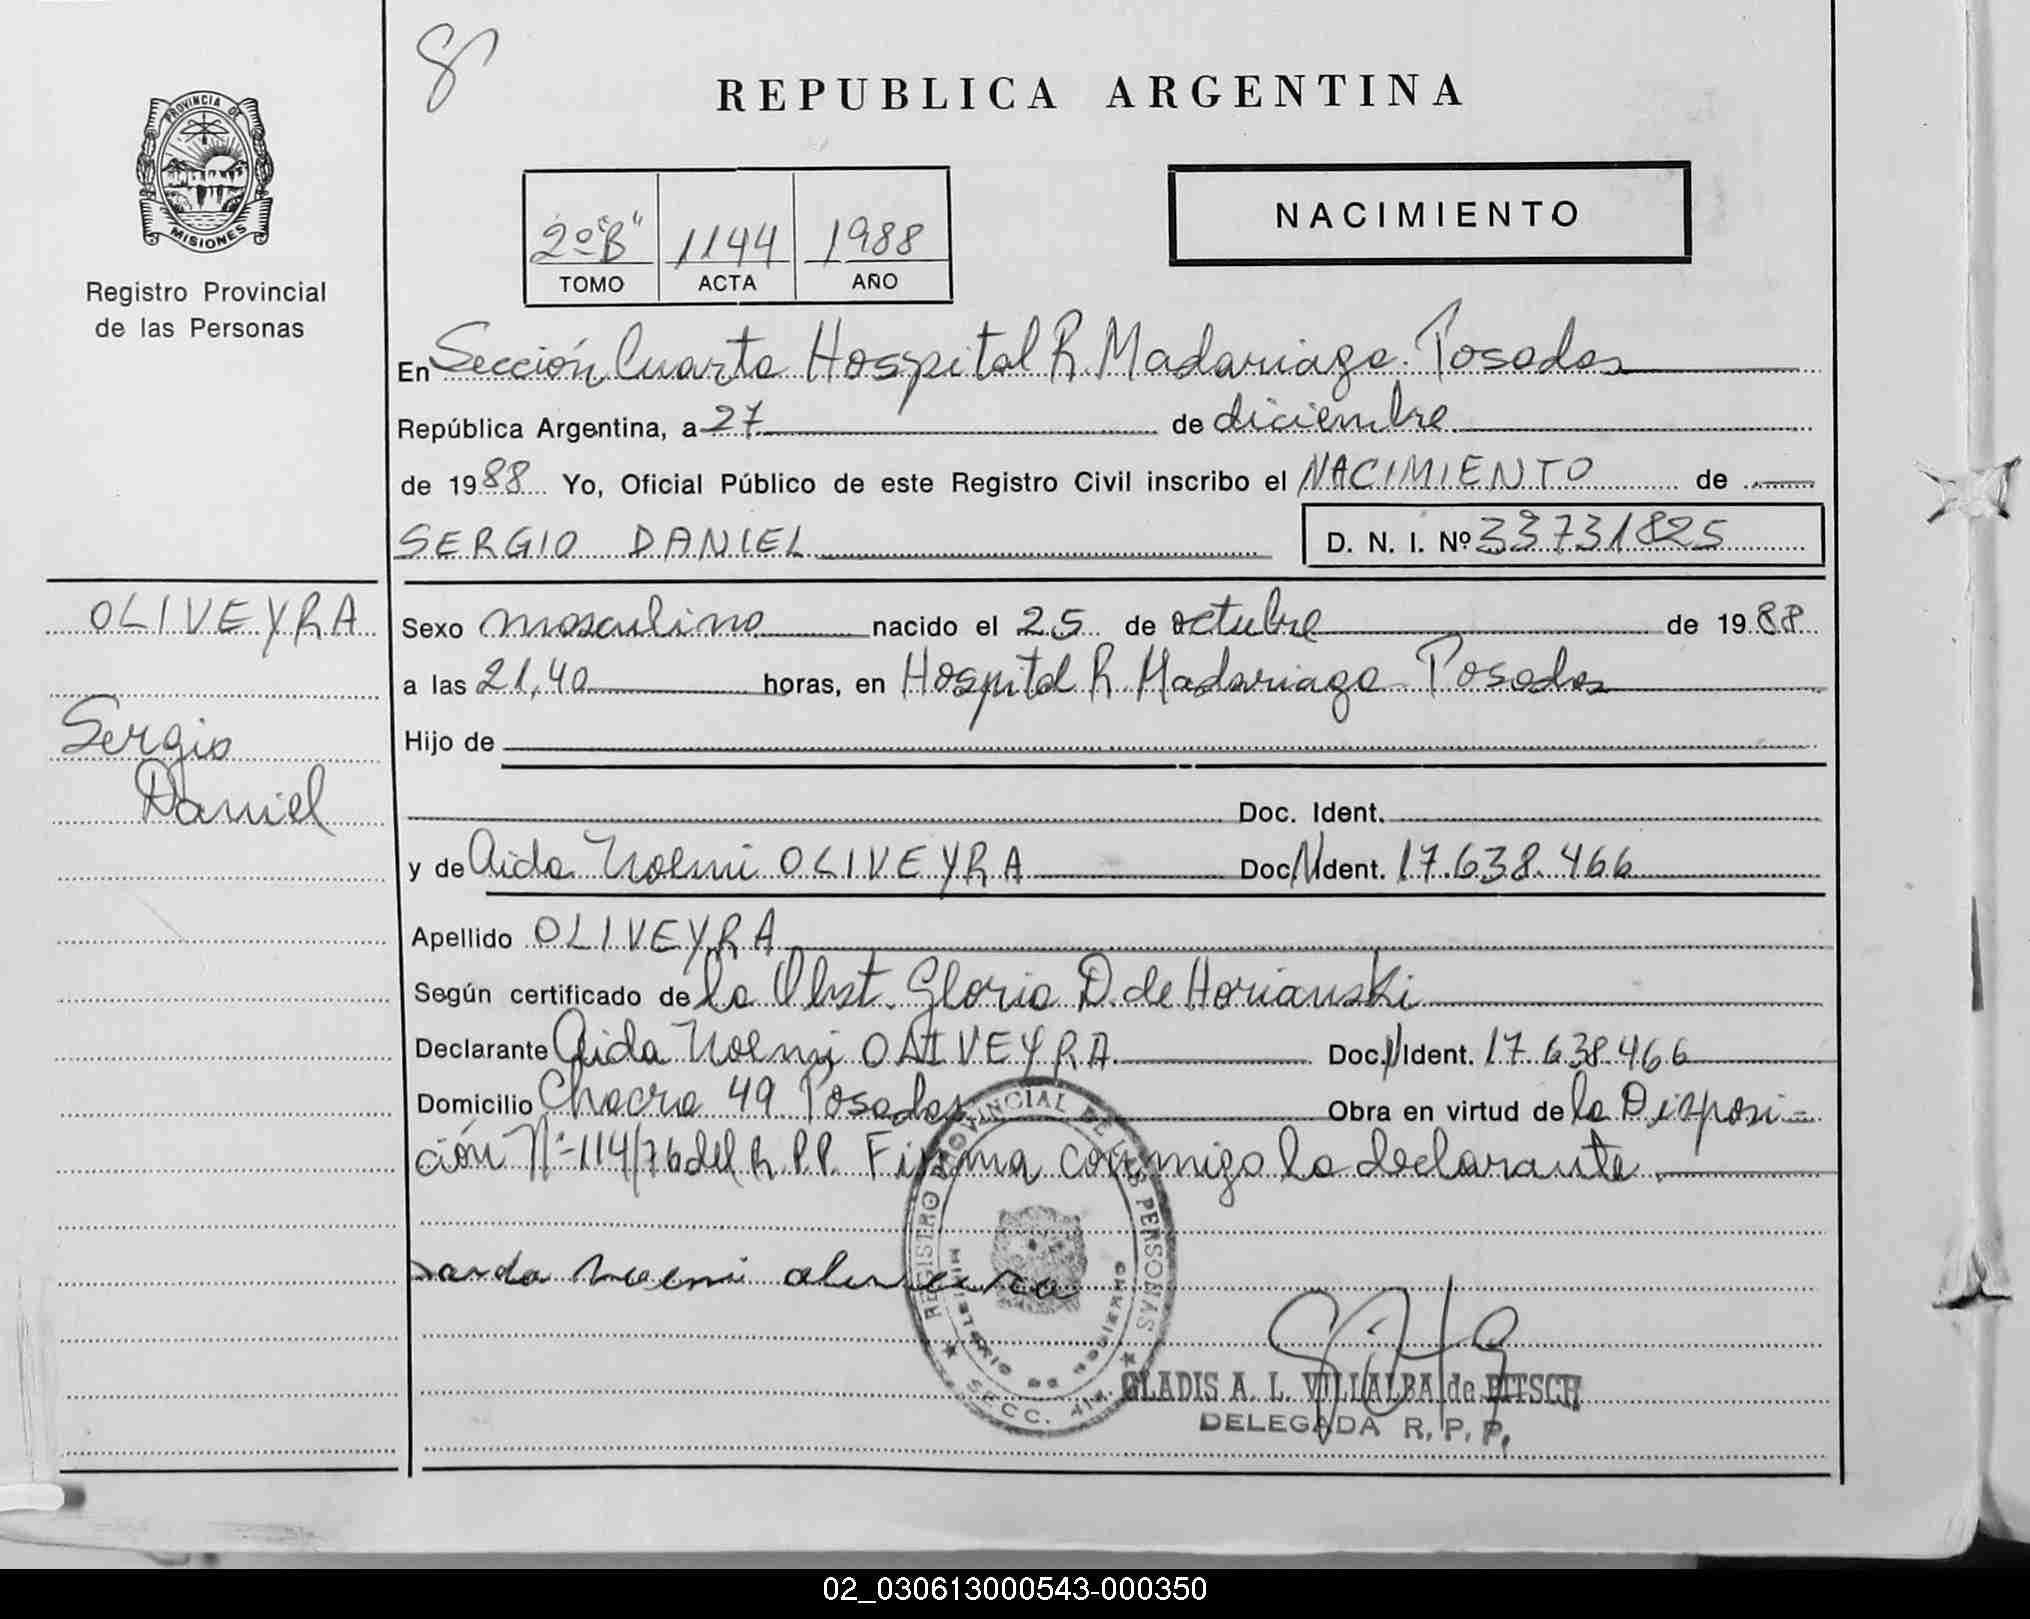 8
PROVINCIA DE
MISIONES
Registro Provincial
de las Personas
REPUBLICA ARGENTINA
2º "B" 1144 1988
TOMO ACTA AÑO
NACIMIENTO
En Sección Cuarta Hospital R. Madariaga. Posadas
República Argentina, a 27 de diciembre
de 1988 Yo, Oficial Público de este Registro Civil inscribo el NACIMIENTO de
SERGIO DANIEL D. N. I. Nº 33731825
OLIVEYRA
Sergio
Daniel
Sexo masculino nacido el 25 de octubre de 1988
a las 21,40 horas, en Hospital R. Madariaga Posadas
Hijo de
Doc. Ident.
y de Aida Noemi OLIVEYRA Doc. N Ident. 17.638.466
Apellido OLIVEYRA
Según certificado de la Obst. Gloria D. de Horianski
Declarante Aida Noemi OLIVEYRA Doc. N Ident. 17.638.466
Domicilio Chacra 49 Posadas Obra en virtud de la Disposi-
ción Nº 114/76 del R.P.P. Firma conmigo la declarante.
noemi
REGISTRO PROVINCIAL DE LAS PERSONAS
MINISTERIO DE GOBIERNO
SECC. 4ta.
GLADIS A. L. VILLALBA de PITSCH
DELEGADA R. P. P.
02_030613000543-000350